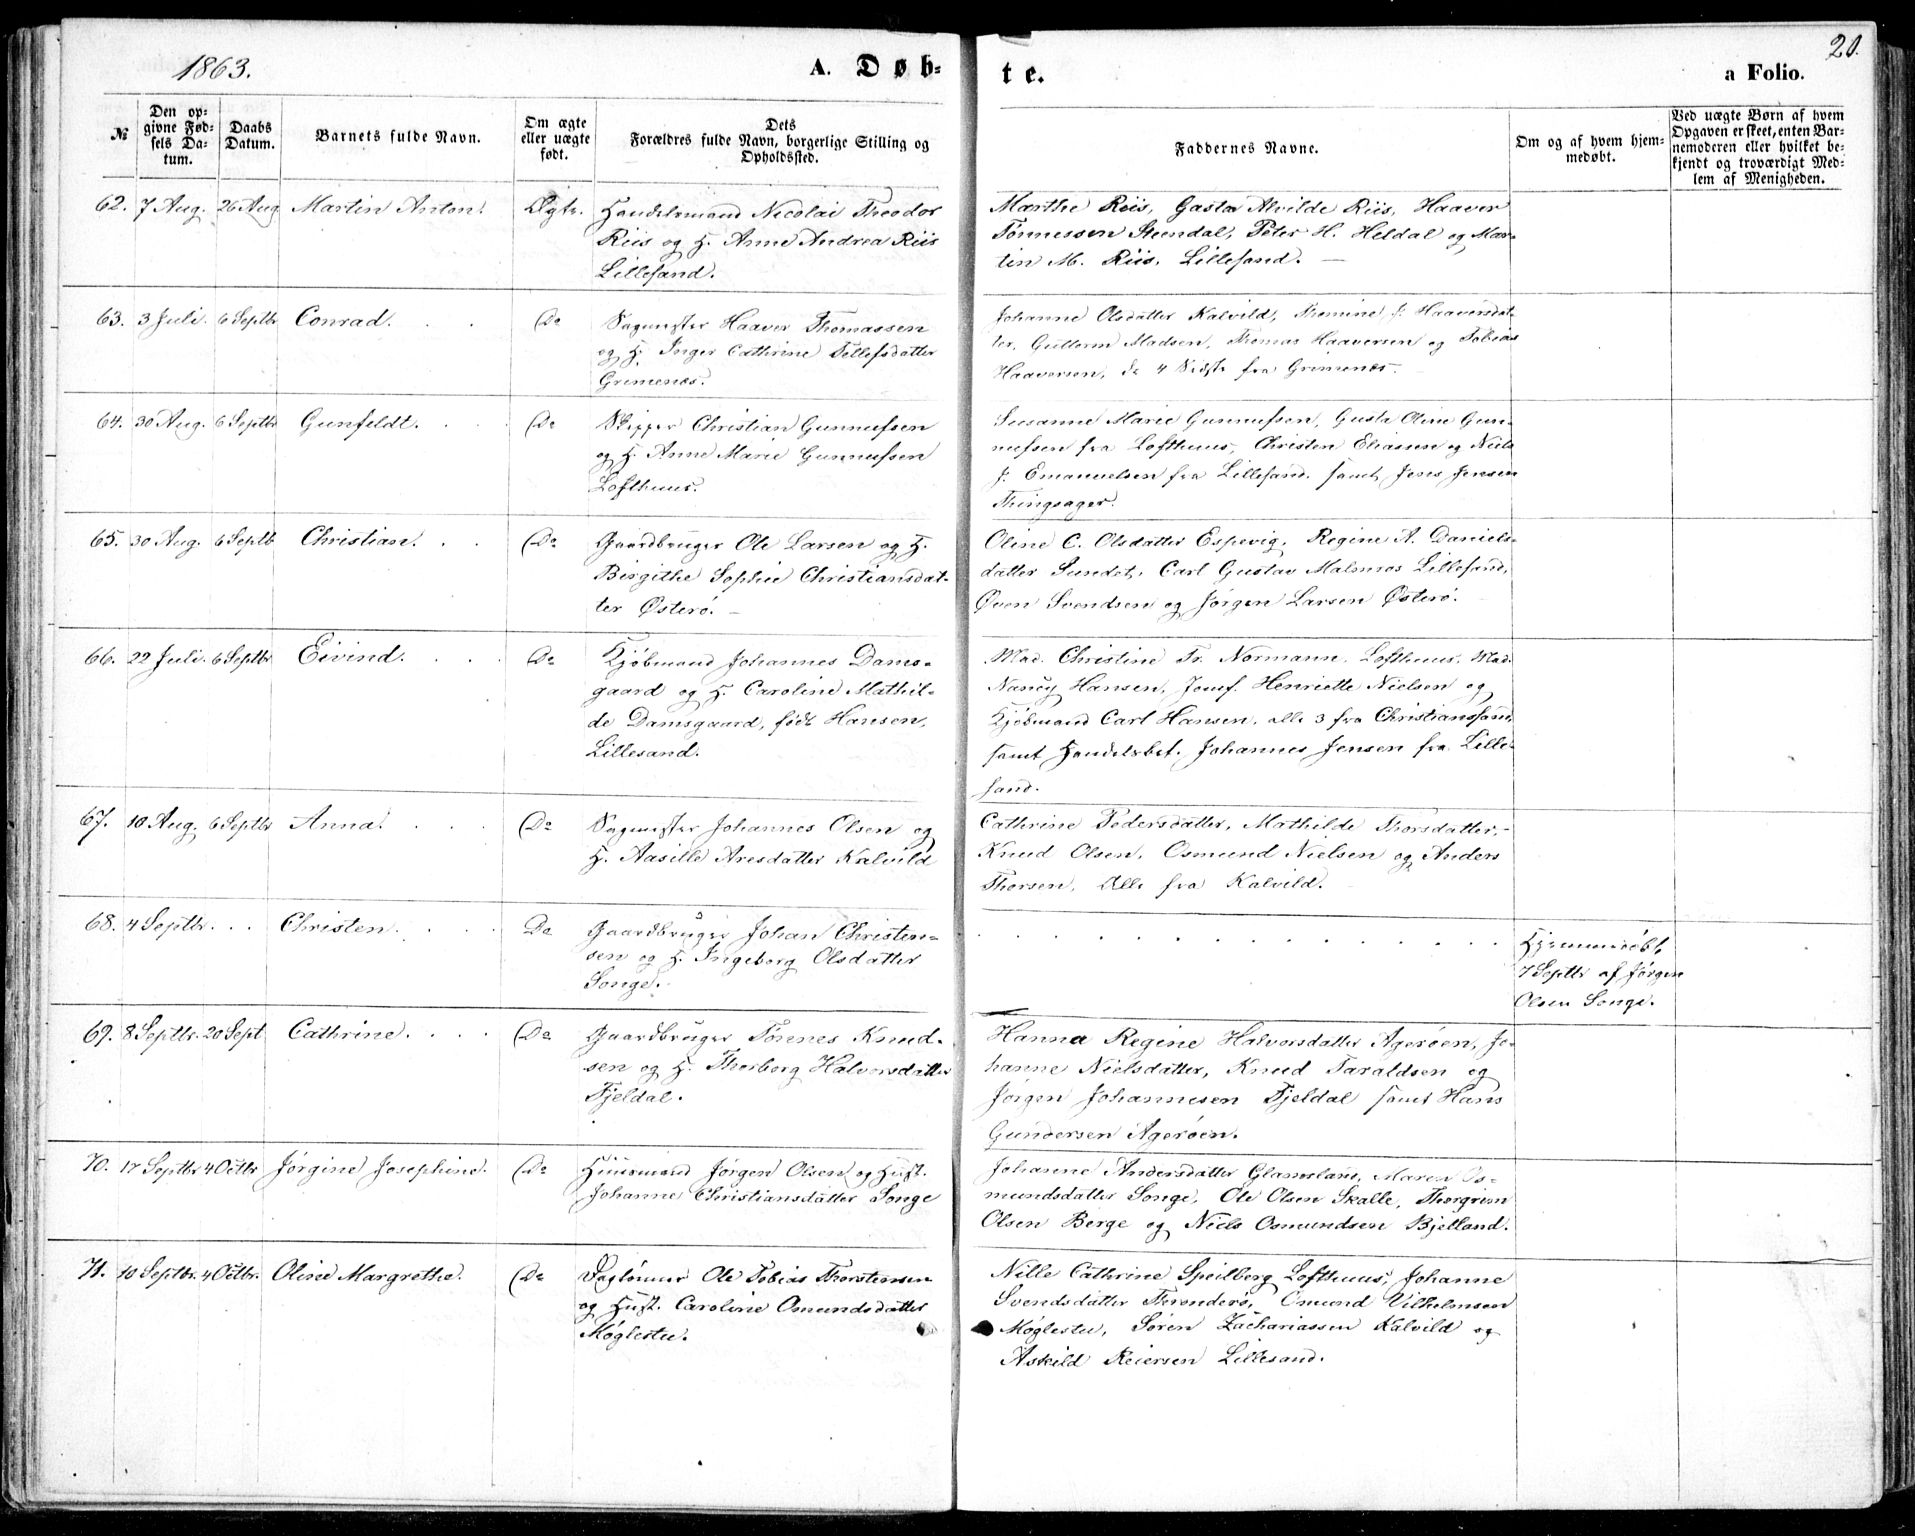 1863.
A. Døb-
te.
a Folio.
20.
№
Den op-
givne Fød-
sels Da-
tum.
Daabs
Datum.
Barnets fulde Navn.
Om ægte
eller uægte
født.
Dets
Forældres fulde Navn, borgerlige Stilling og
Opholdssted.
Faddernes Navne.
Om og af hvem hjem-
medøbt.
Ved uægte Børn af hvem
Opgaven er skeet, enten Bar-
nemoderen eller hvilket be-
kjendt og troværdigt Med-
lem af Menigheden.
62. 7 Aug. 26 Aug Martin Anton. Ægte. Handelsmand Nicolai Theodor
Riis og H. Anne Andrea Riis
Lillesand.
Marthe Riis, Gusta Alvilde Riis, Haaver
Tønnessen Steendal, Peter H. Heldal og Mar-
tin M. Riis, Lillesand. —
63. 3 Juli. 6 Septbr Conrad. Do Sagmester Haaver Thomassen
og H. Inger Cathrine Tellefsdatter
Grimenæs.
Johanne Olsdatter Kalvild, Themine J. Haaversdat-
ter, Guttorm Madsen, Thomas Haaversen og Tobias
Haaversen, de 4 Sidste fra Grimenæs.
64. 30 Aug. 6 Septbr Gunfeldt. Do Skipper Christian Gunnufsen
og H. Anne Marie Gunnufsen
Lofthuus.
Susanne Marie Gunnufsen, Gusta Oline Gun-
nufsen fra Lofthuus, Christen Eliassen og Niels
J. Emanuelsen fra Lillesand, samt Jens Jensen
Thingsager.
65. 30 Aug. 6 Septb Christian. Do Gaardbruger Ole Larsen og H.
Birgithe Sophie Christiansdat-
ter Østerø. —
Oline C. Olsdatter Espevig, Regine A. Daniels-
datter Sundet, Carl Gustav Malmros Lillesand,
Øven Svendsen og Jørgen Larsen Østerø.
66. 22 Juli. 6 Septbr Eivind. Do Kjøbmand Johannes Dams-
gaard og H. Caroline Mathil-
de Damsgaard, født Hansen,
Lillesand.
Mad. Christine Fr. Normann, Lofthuus, Mad.
Nancy Hansen, Jomf. Henriette Nielsen og
Kjøbmand Carl Hansen, alle 3 fra Christianssand,
samt Handelsbet. Johannes Jensen fra Lille-
sand.
67. 10 Aug. 6 Septbr Anna. Do Sagmester Johannes Olsen og
H. Aasille Aresdatter Kalvild
Cathrine Pedersdatter, Mathilde Thorsdatter,
Knud Olsen, Osmund Nielsen og Anders
Thorsen, Alle fra Kalvild.
68. 4 Septbr. Christen. Do Gaardbruger Johan Christen-
sen og H. Ingeborg Olsdatter
Songe.
Hjemmedøbt
7 Septbr af Jørgen
Olsen Songe.
69. 8 Septbr. 20 Sept Cathrine. Do Gaardbruger Tønnes Knud-
sen og H. Thorborg Halvorsdatter
Fjeldal.
Hanna Regine Halvorsdatter Agerøen, Jo-
hanne Nielsdatter, Knud Taraldsen og
Jørgen Johannesen Fjeldal samt Hans
Gundersen Agerøen.
70. 17 Septbr 4 Octbr Jørgine Josephine. Do Huusmand Jørgen Olsen og Hust.
Johanne Christiansdatter Songe
Johanne Andersdatter Glamsland, Maren Os-
mundsdatter Songe, Ole Olsen Skalle, Thorgrim
Olsen Berge og Niels Osmundsen Bjelland.
71. 10 Septbr. 4 Octbr. Oline Margrethe. Do Daglønner Ole Tobias Thorstensen
og Hust. Caroline Osmundsdatter
Møglestu.
Nille Cathrine Speilberg Lofthuus, Johanne
Svendsdatter Thronderø, Osmund Vilhelmsen
Møglestu, Søren Zachariassen Kalvild og
Askild Reiersen Lillesand.